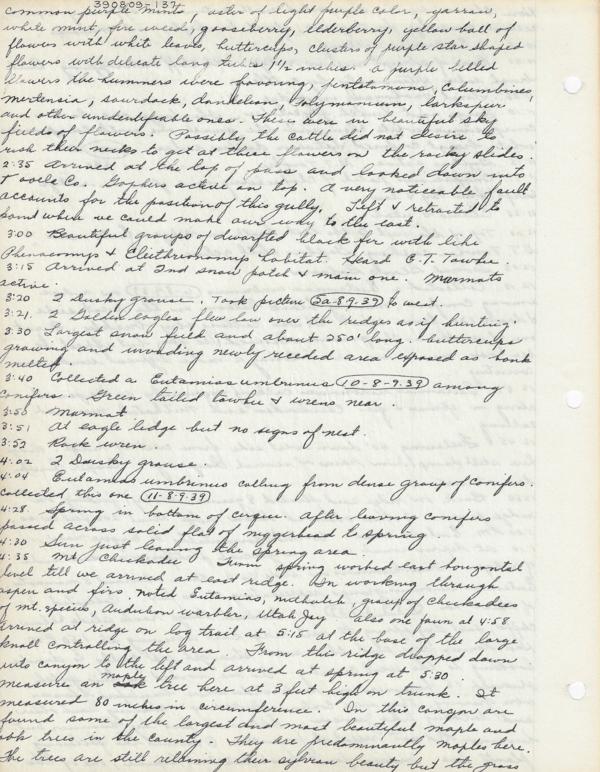 390809-137
common purple mints, aster of light purple color, yarrow,
white mint, fire weed, gooseberry, elderberry, yellow ball of
flowers with white leaves, buttercups, clusters of purple star shaped
flowers with delicate long tubes 1½ inches. a purple belled
flowers the hummers were favoring, pentstamons, columbines,
mertensia, sourdock, dandelion, Polymonium, larkspur
and other unidentifiable ones. These were in beautiful sky
fields of flowers. Possibly the cattle did not desire to
risk their necks to get at these flowers on the rocky slides.
2:35 Arrived at the top of pass and looked down into
Tooele Co. Gophers active on top. A very noticeable fault
accounts for the position of this gully. Left & retracted to
point where we could make our way to the east.
3:00 Beautiful groups of dwarfted black fir with like
Phenacomys & Cleithrionomys habitat. Heard G.T. Towhee.
3:15 Arrived at 2nd snow patch & main one. Marmots
active.
3:20 2 Dusky grouse. Took picture 5a-8-9-39 to west.
3:21. 2 Golden eagles flew low over the ridges as if hunting.
3:30 Largest snow field and about 250' long. buttercups
growing and invading newly receded area exposed as bank
melted.
3:40 Collected a Eutamias umbrinus 10-8-9-39 among
conifers. Green tailed towhee & wrens near.
3:50 Marmot
3:51 At eagle ledge but no signs of nest.
3:52 Rock wren.
4:02 2 Dusky grouse.
4:04 Eutamias umbrinus calling from dense group of conifers.
collected this one 11-8-9-39
4:28 Spring in bottom of cirque. After leaving conifers
passed across solid flat of niggerhead to spring.
4:30 Sun just leaving the spring area.
4:35 Mt. Chickadee From spring worked east horizontal
level till we arrived at east ridge. In working through
aspen and firs, noted Eutamias, nuthatch, group of chickadees
of mt. species, Audubon warbler, Utah Jay Also one fawn at 4:58
Arrived at ridge on log trail at 5:15 at the base of the large
knoll controlling the area. From this ridge dropped down
into canyon to the left and arrived at spring at 5:30.
measure an maple tree here at 3 feet high on trunk. It
measured 80 inches in circumference. In this canyon are
found some of the largest and most beautiful maple and
oak trees in the county. They are predominantly maples here.
The trees are still retaining their sylvan beauty but the grass